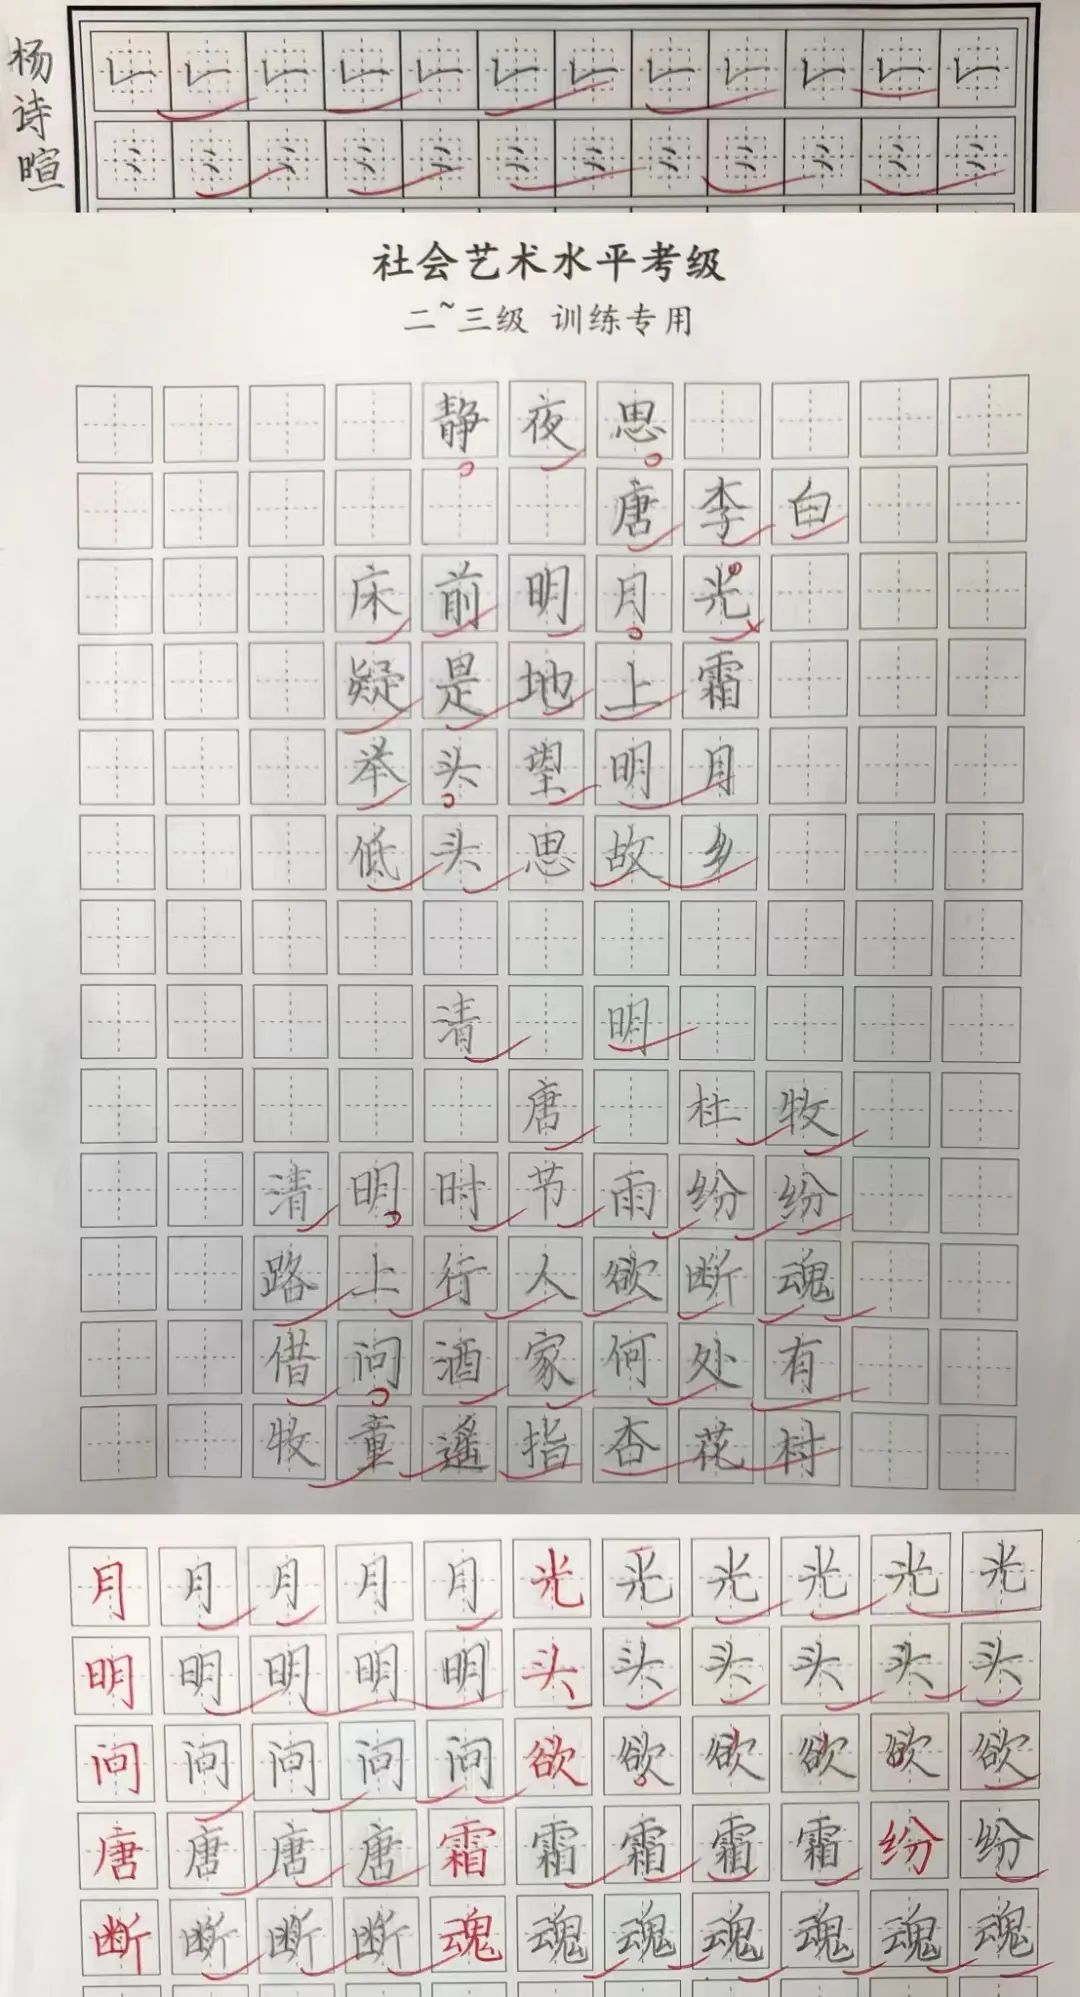 杨诗暄
社会艺术水平考级
二~三级 训练专用
静夜思
唐李白
床前明月光
疑是地上霜
举头望明月
低头思故乡
清明
唐 杜牧
清明时节雨纷纷
路上行人欲断魂
借问酒家何处有
牧童遥指杏花村
月月月月月光光光光光光
明明明明明头头头头头头
问问问问问欲欲欲欲欲欲
唐唐唐唐霜霜霜霜霜纷纷
断断断断魂魂魂魂魂魂魂